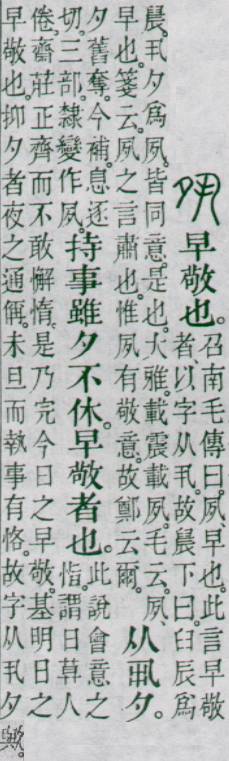 𡖊 早敬也。
召南毛傳曰。夙、早也。此言早敬
者、以字从丮。故晨下曰。𦥑辰爲
晨。丮夕爲夙。皆同意。是也。大雅。載震載夙。毛云。夙、
早也。箋云。夙之言肅也。惟夙有敬意。故鄭云爾。
从丮夕。
夕舊奪。今補。息逐
切。三部。隸變作夙。
持事雖夕不休。早敬者也。
此說會意之
恉。謂日莫人
倦。齋莊正齊而不敢懈惰。是乃完今日之早敬。基明日之
早敬也。抑夕者夜之通偁。未旦而執事有恪。故字从丮夕
歟。